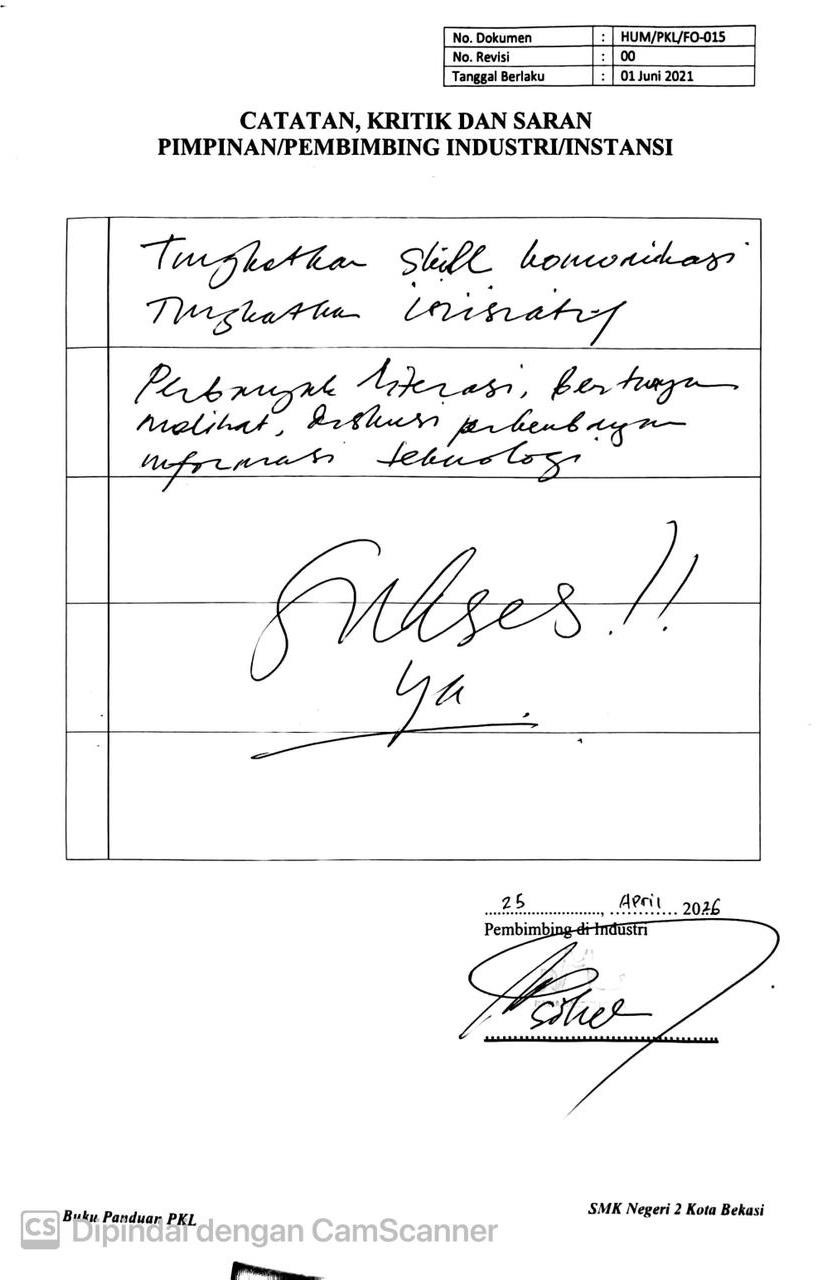 No. Dokumen : HUM/PKL/FO-015
No. Revisi : 00
Tanggal Berlaku : 01 Juni 2021
CATATAN, KRITIK DAN SARAN
PIMPINAN/PEMBIMBING INDUSTRI/INSTANSI
Tingkatkan Skill komonikasi
Tingkatkan inisiatif
Perbanyak literasi, Bertanya
melihat, diskusi perkembangan
informasi teknologi
Sukses !!
ya
25, April 2026
Pembimbing di Industri
Buku Panduan PKL
SMK Negeri 2 Kota Bekasi
CS Dipindai dengan CamScanner